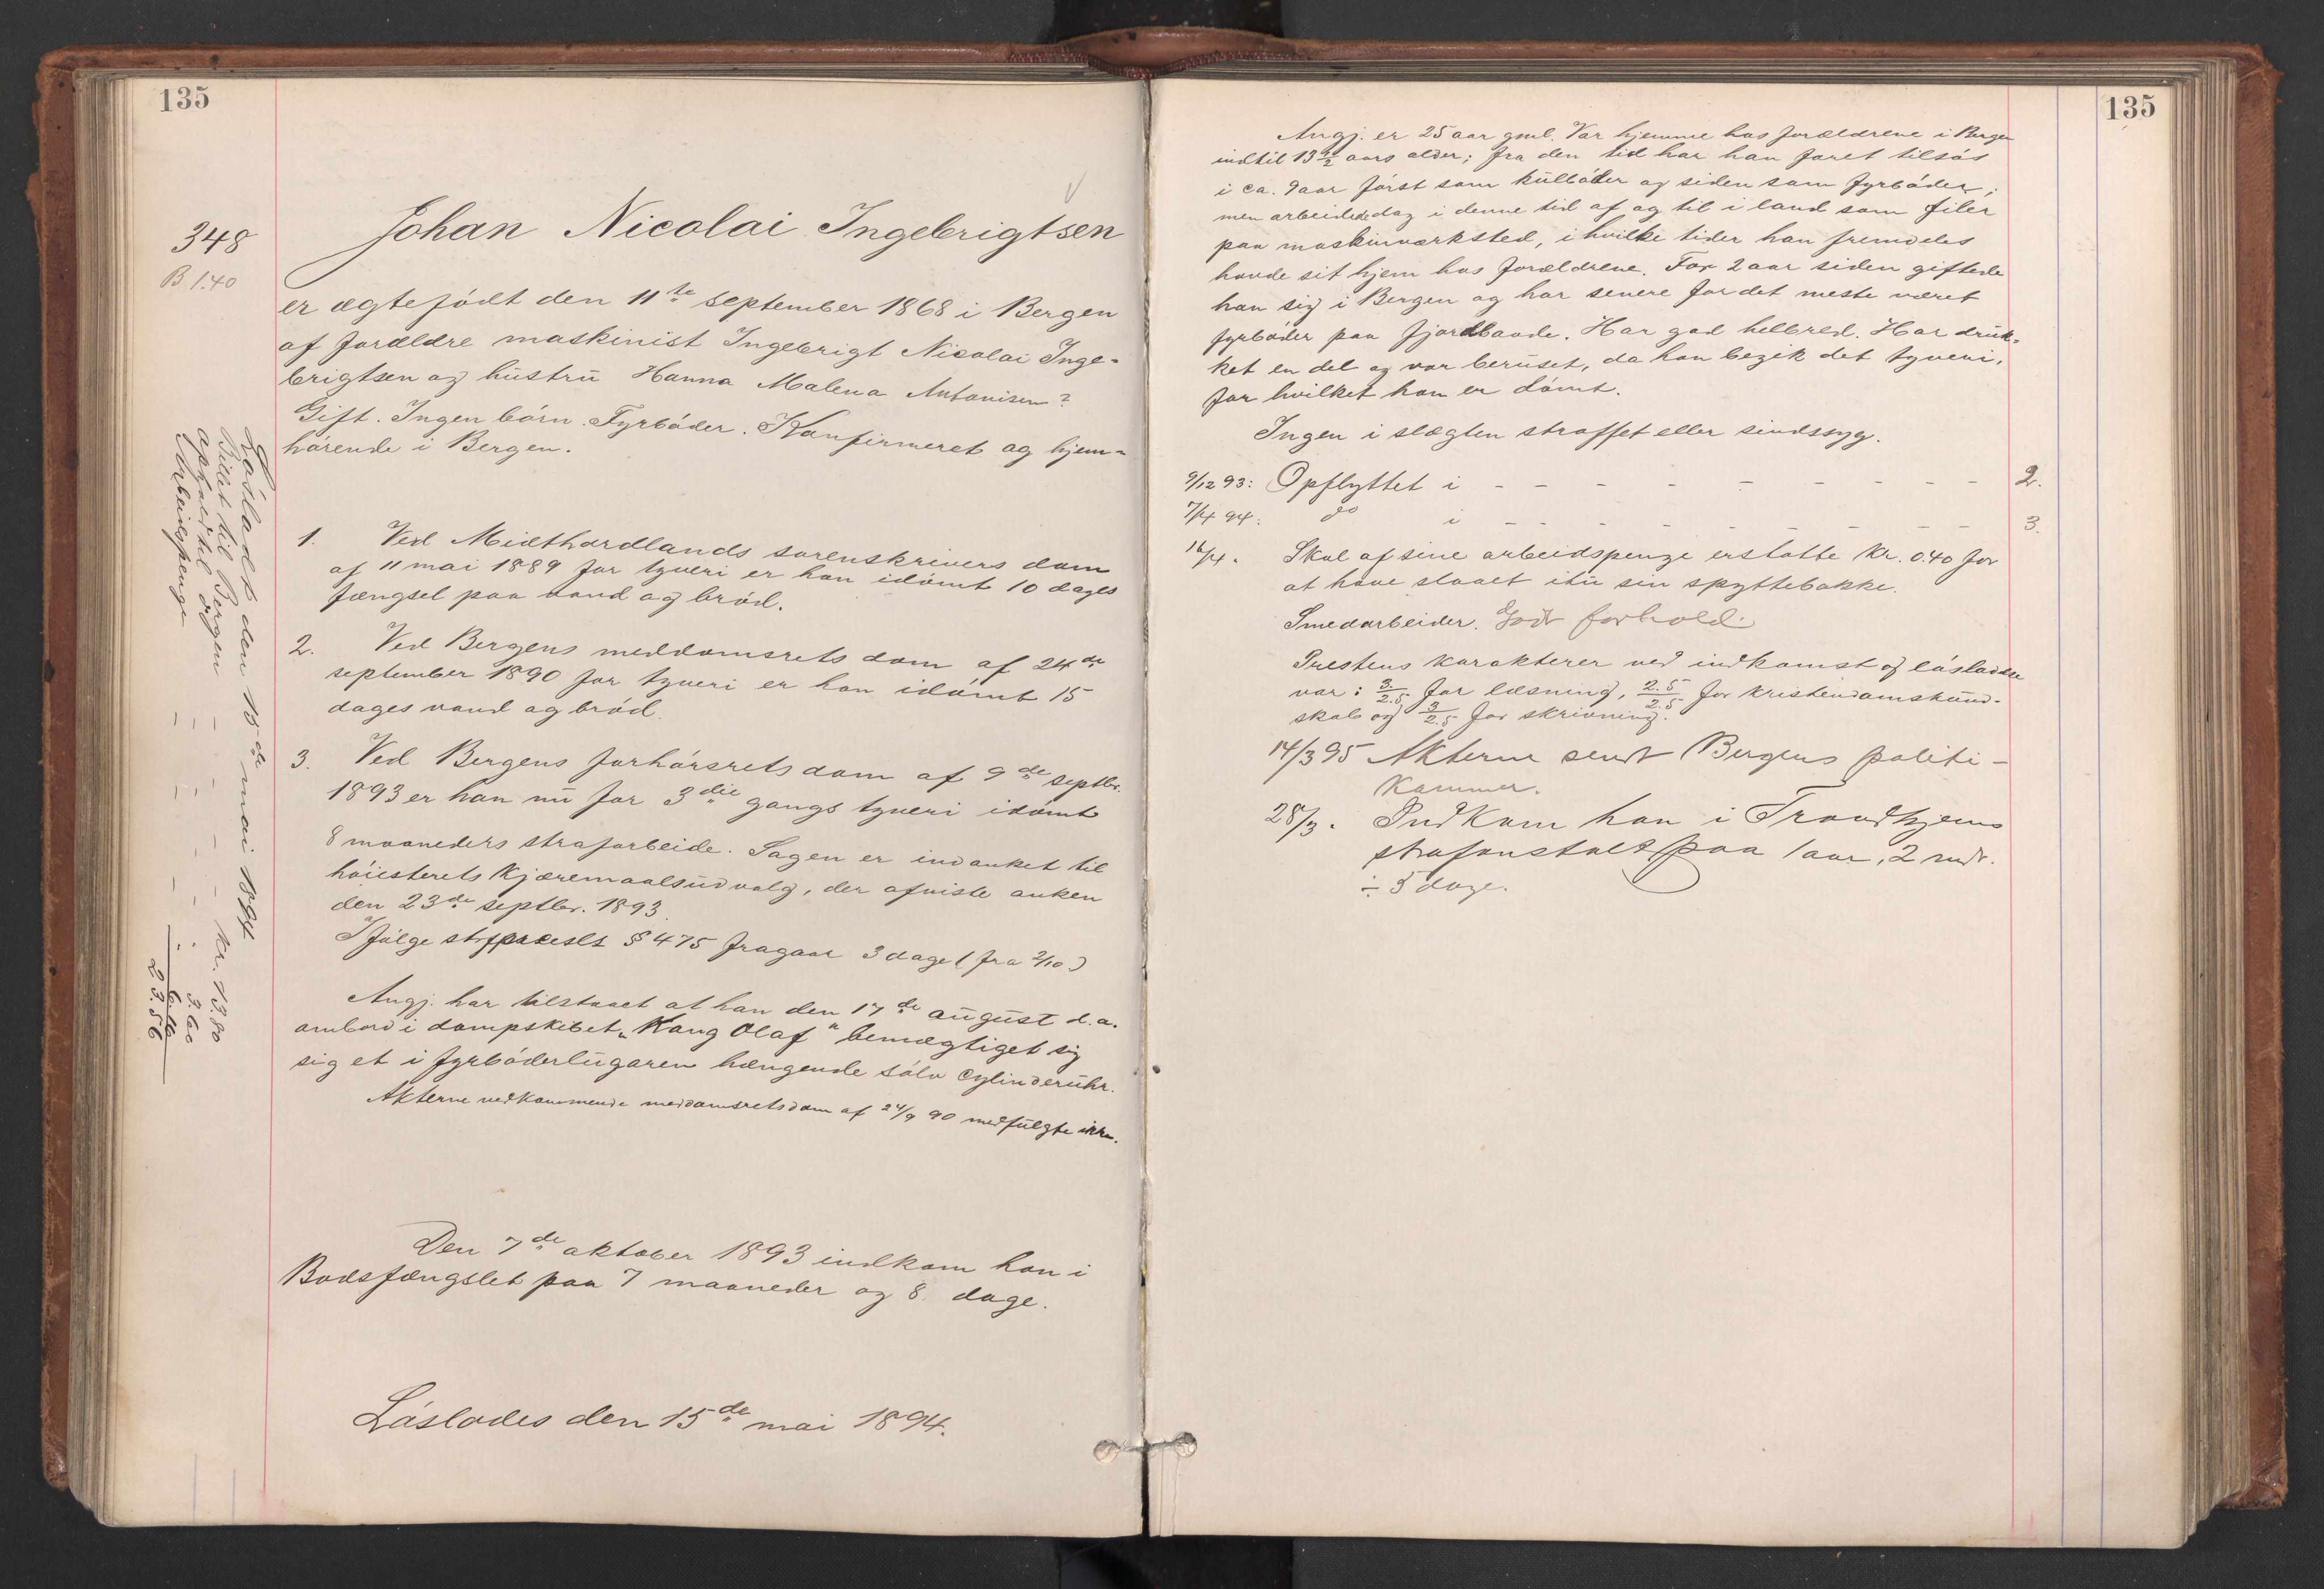 135
348
B. 1.40
Johan Nicolai Ingebrigtsen
er ægtefödt den 11te september 1868 i Bergen
af forældre maskinist Ingebrigt Nicolai Inge-
brigtsen og hustru Hanna Malena Antonisen?
Gift. Ingen börn. Fyrböder. Konfirmeret og hjem-
hörende i Bergen.
1. Ved Midthordlands sorenskrivers dom
af 11 mai 1889 for tyveri er han idömt 10 dages
fængsel paa vand og bröd.
2. Ved Bergens meddomsrets dom af 24de
september 1890 for tyveri er han idömt 15
dages vand og bröd.
3. Ved Bergens forhörsrets dom af 9de septbr.
1893 er han nu for 3die gangs tyveri idömt
8 maaneders strafarbeide. Sagen er indanket til
höiesterets kjæremaalsudvalg, der afviste anken
den 23de septbr. 1893.
Ifölge strfprcslt § 475 fragaar 3 dage (fra 2/10)
Angj. har tilstaaet at han den 17de august d.a.
ombord i dampskibet "Kong Olaf" bemægtiget sig
sig et i fyrböderlugaren hængende sölv cylinderuhr.
Akterne vedkommende meddomsretsdom af 24/9 90 medfulgte ikke.
Den 7de oktober 1893 indkom han i
Bodsfængslet paa 7 maaneder og 8 dage.
Löslades den 15de mai 1894.
Lösladt den 15de mai 1894
Billet til Bergen - - - Kr. 13.80
ophold til do - - - 3.60
Arbeidspenge - - - 6.16
23.56
135
Angj. er 25 aar gml. Var hjemme hos forældrene i Bergen
indtil 13 1/2 aars alder; fra den tid har han faret tilsös
i ca. 9 aar först som kulböder og siden som fyrböder;
men arbeidede dog i denne tid af og til i land som filer
paa maskinværksted, i hvilke tider han fremdeles
havde sit hjem hos forældrene. For 2 aar siden giftede
han sig i Bergen og har senere for det meste været
fyrböder paa fjordbaade. Har god helbred. Har druk-
ket en del og var beruset, da han begik det tyveri,
for hvilket han er dömt.
Ingen i slægten straffet eller sindssyg.
9/12 93: Opflyttet i - - - - - - - - 2.
7/4 94: do i - - - - - - - - 3.
16/4. Skal af sine arbeidspenge erstatte Kr. 0.40 for
at have slaaet itu sin spyttebakke.
Smedarbeider. Godt forhold.
Prestens karakterer ved indkomst og lösladelse
var: 3/2.5 for læsning, 2.5/2.5 for kristendomskund-
skab og 3/2.5 for skrivning.
14/3 95 Akterne sendt Bergens politi-
kammer.
28/3. Indkom han i Trondhjems
strafanstalt paa 1 aar, 2 mdr.
÷ 5 dage.